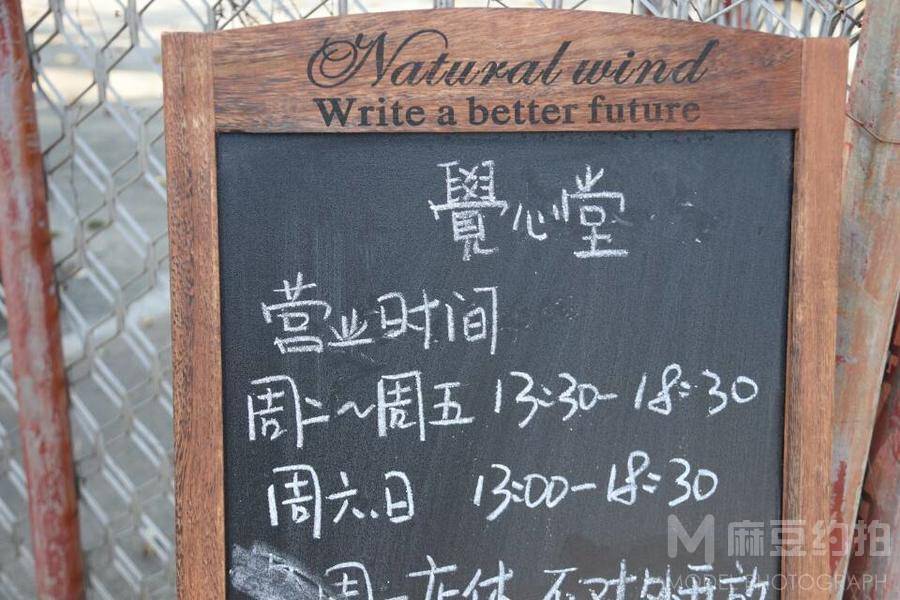 Natural wind
Write a better future
覺心堂
营业时间
周二~周五 13:30-18:30
周六.日 13:00-18:30
周一店休 不对外开放
M 麻豆约拍
MODEL PHOTOGRAPH